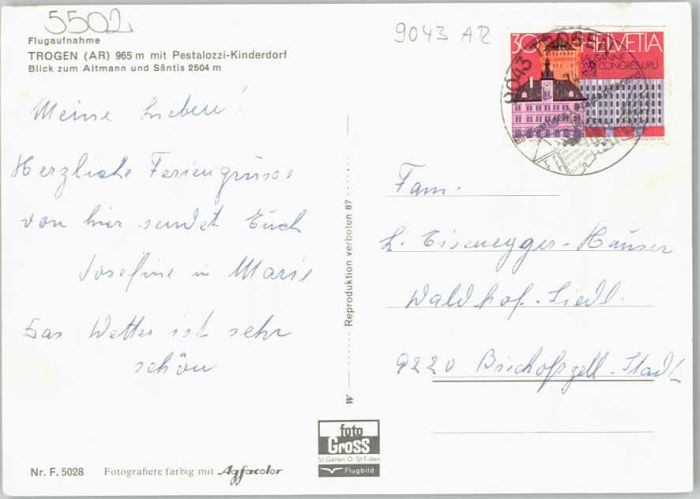 5502
Flugaufnahme
TROGEN (AR) 965 m mit Pestalozzi-Kinderdorf
Blick zum Altmann und Säntis 2504 m
9043 AR
30 HELVETIA
LAUSANNE
CONGRES UPU
9043 TROGEN
Meine Lieben!
Herzliche Feriengrüsse
von hier sendet Euch
Josefine u Marie
Das Wetter ist sehr
schön
W Reproduktion verboten 87
Fam.
L. Eisenegger-Häuser
Waldhof-Siedl.
9220 Bischofszell-Stadt
foto
Gross
St.Gallen O. St.Fiden
Flugbild
Nr. F. 5028 Fotografiere farbig mit Agfacolor